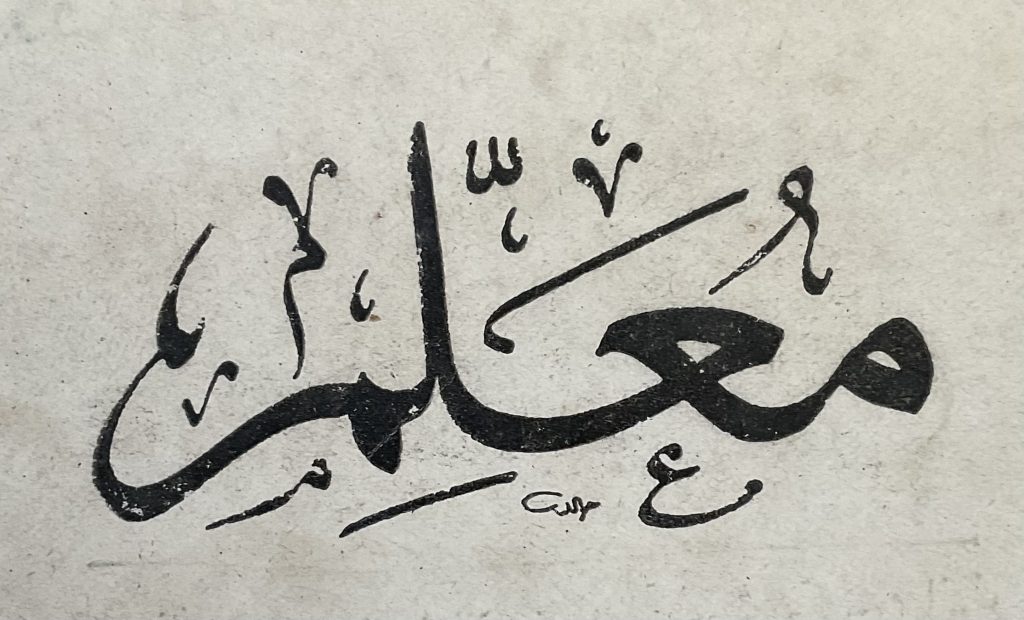 مُعَلِّم